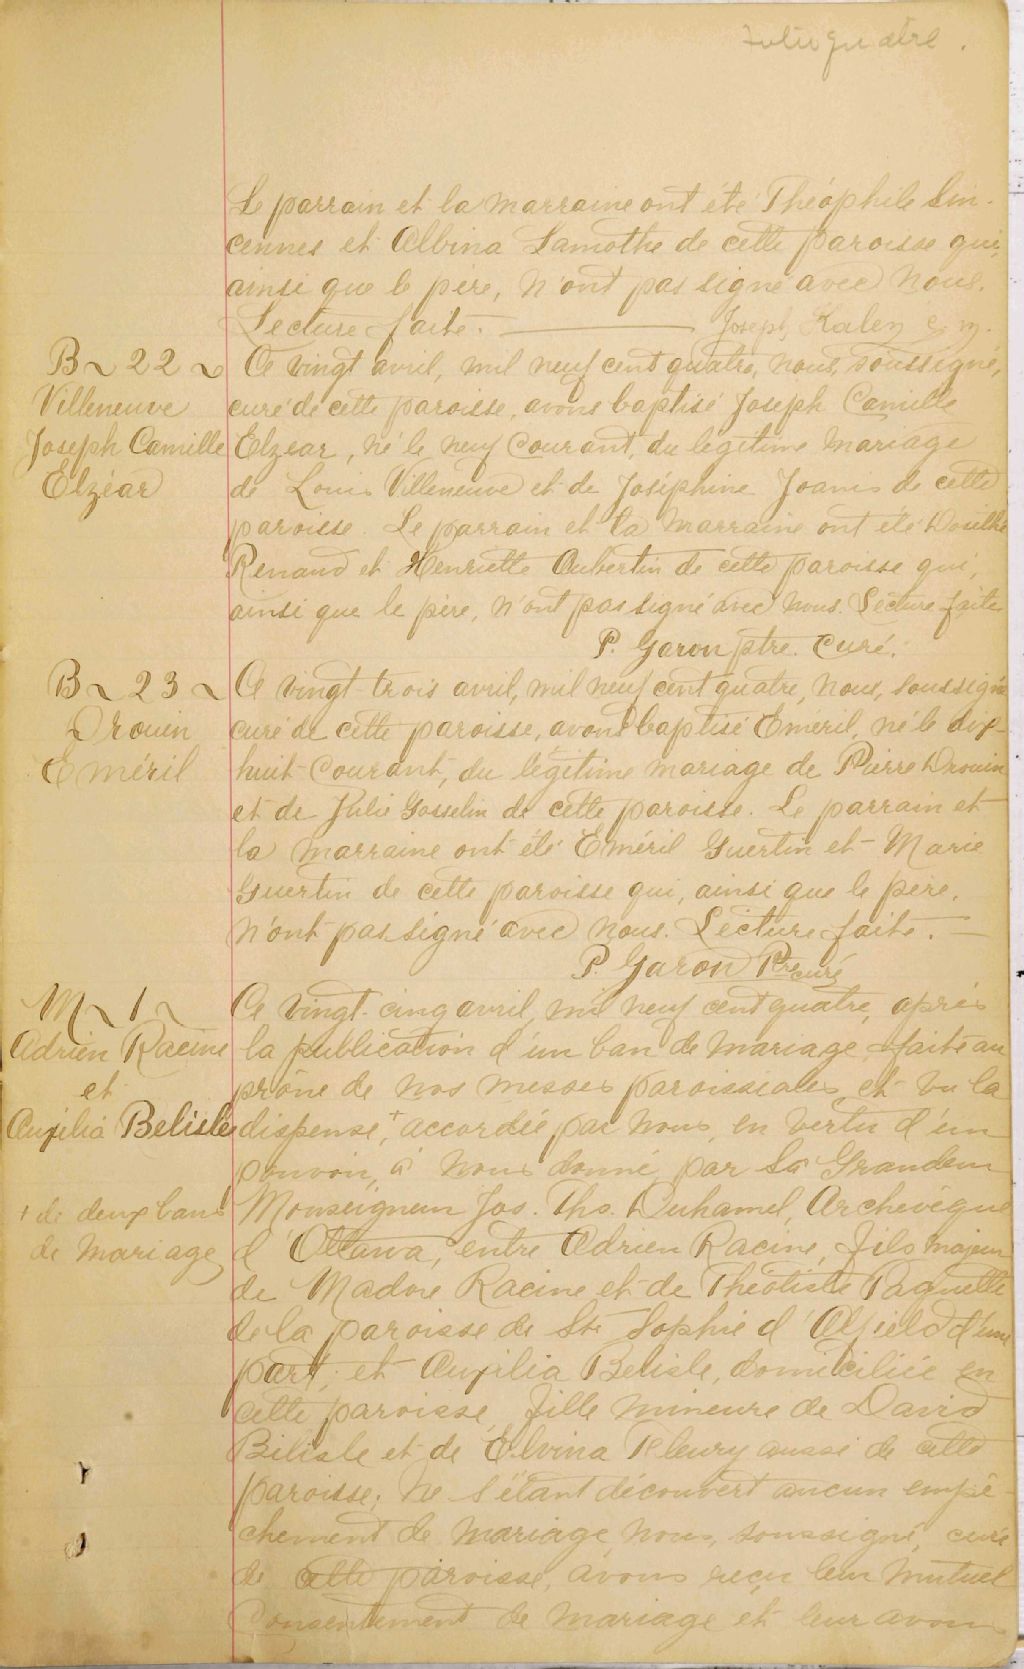 Le parrain et la marraine ont été Théophile Sin-
cennes et Albina Lamothe de cette paroisse qui,
ainsi que le père, n'ont pas signé avec nous.
Lecture faite. Joseph
B ~ 22 ~
Villeneuve
Joseph Camille
Elzéar
Ce vingt avril, mil neuf cent quatre, nous, soussigné,
curé de cette paroisse, avons baptisé Joseph Camille
Elzear, né le neuf courant, du légitime mariage
de Louis Villeneuve et de Joséphine Joanis de cette
paroisse. Le parrain et la marraine ont été
Renaud et Henriette Aubertin de cette paroisse qui,
ainsi que le père, n'ont pas signé avec nous. Lecture faite
P. Garon ptre. curé.
B ~ 23 ~
Drouin
Eméril
Ce vingt-trois avril, mil neuf cent quatre, nous, soussigné
curé de cette paroisse, avons baptisé Emeril, né le dix-
huit courant, du légitime mariage de Pierre Drouin
et de Julie Gosselin de cette paroisse. Le parrain et
la marraine ont été Eméril Guertin et Marie
Guertin de cette paroisse qui, ainsi que le père,
n'ont pas signé avec nous. Lecture faite. —
P. Garon Ptre curé
M ~ 1 ~
Adrien Racine
et
Auxilia Belisle
+ de deux bans
de mariage
Ce vingt-cinq avril, mil neuf cent quatre, après
la publication d'un ban de mariage, faite au
prône de nos messes paroissiales, et vu la
dispense,+ accordée par nous, en vertu d'un
pouvoir, à nous donné, par Sa Grandeur
Monseigneur Jos. Ths. Duhamel, Archevêque
d'Ottawa, entre Adrien Racine, fils majeur
de Madore Racine et de Théotiste Paquette
de la paroisse de Ste Sophie d'Alfield d'une
part; et Auxilia Belisle, domiciliée en
cette paroisse, fille mineure de David
Bélisle et de Elvina Fleury aussi de cette
paroisse; ne s'étant découvert aucun empê-
chement de mariage, nous, soussigné, curé
de cette paroisse, avons reçu leur mutuel
consentement de mariage et leur avons